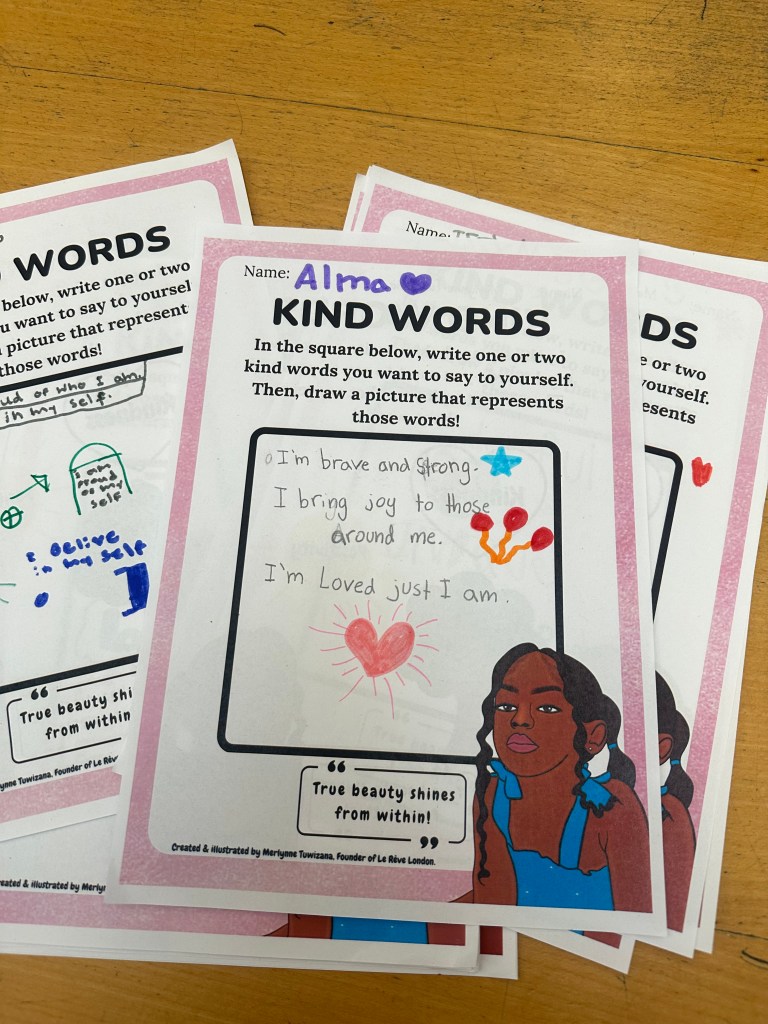 WORDS
below, write one or two
u want to say to yourself
picture that represents
those words!
ud of who I am
in my self.
I am
proud
of my
self
I belive
in my self
“
True beauty shi
from within
Tuwizana, Founder of Le Rêve
Name: Alma
KIND WORDS
In the square below, write one or two
kind words you want to say to yourself.
Then, draw a picture that represents
those words!
I'm brave and strong.
I bring joy to those
around me.
I'm Loved just I am.
“
True beauty shines
from within!
”
Created & illustrated by Merlynne Tuwizana, Founder of Le Rêve London.
Name:
RDS
e or two
yourself.
esents
eated & illustrated by Merlyn